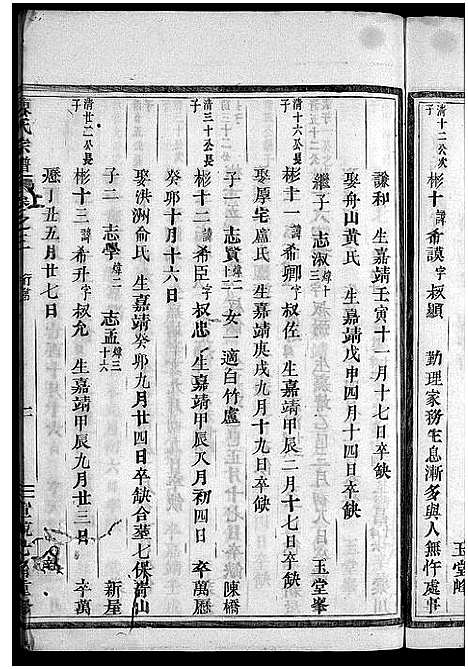 玉堂峰
清十二公次子 彬十 諱希謨字叔顯 勤理家務生息漸多與人無忤處事
謙和 生嘉靖壬寅十一月十七日卒缺
娶舟山黃氏 生嘉靖戊申四月十四日卒缺
繼子一 志淑 緯十三 玉堂峯
清十六公長子 彬十一 諱希卿字叔佐 生嘉靖甲辰二月十七日卒缺
娶厚宅盧氏 生嘉靖庚戌九月十九日卒缺
子一 志賢 緯二十二 女一適白竹盧 陳橋
清三十公長子 彬十二 諱希臣字叔忠 生嘉靖甲辰八月初四日 卒萬曆
癸卯十月十六日
娶洪洲俞氏 生嘉靖癸卯九月廿四日卒缺合葬七保青山
子二 志學 緯二 志孟 緯三十六 新屋
清廿二公長子 彬十三 諱希升字叔允 生嘉靖甲辰九月廿三日 卒萬
曆丁丑五月廿七日
氏宗譜 卷之三 行第